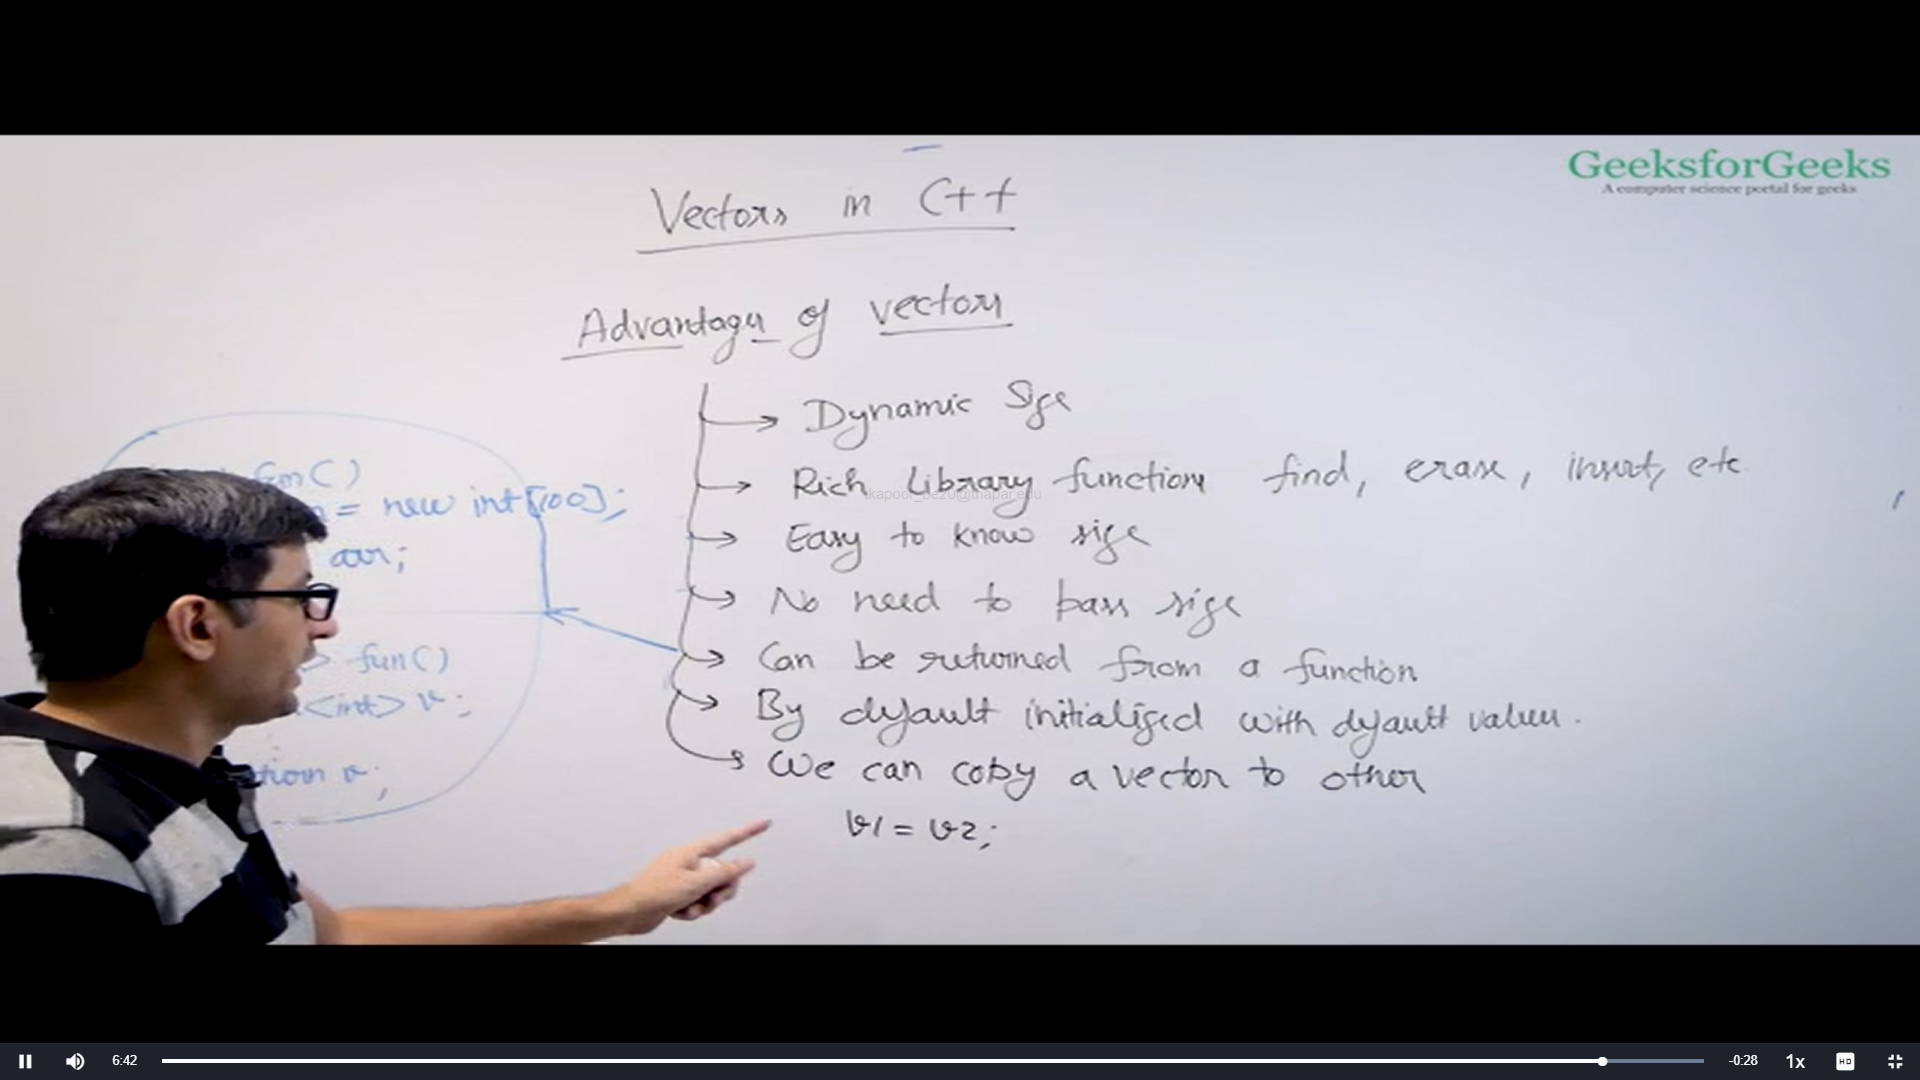 GeeksforGeeks
A computer science portal for geeks
Vectors in C++
Advantages of vectors
Dynamic Size
Rich Library functions find, erase, insert, etc
Easy to know size
No need to pass size
Can be returned from a function
By default initialized with default values.
We can copy a vector to other
v1 = v2;
fun()
= new int[100];
arr;
fun()
<int> v;
v;
kapoor_be20@thapar.edu
6:42
-0:28
1x
HD